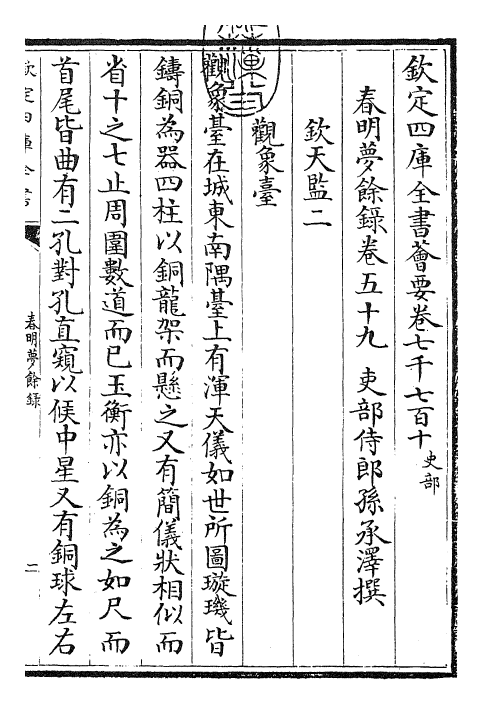 欽定四庫全書薈要卷七千七百十 史部
春明夢餘錄卷五十九 吏部侍郎孫承澤撰
欽天監二
觀象臺
觀象臺在城東南隅臺上有渾天儀如世所圖璇璣皆
鑄銅為器四柱以銅龍架而懸之又有簡儀狀相似而
省十之七止周圍數道而已玉衡亦以銅為之如尺而
首尾皆曲有二孔對孔直窺以候中星又有銅球左右
欽定四庫全書
春明夢餘錄
二